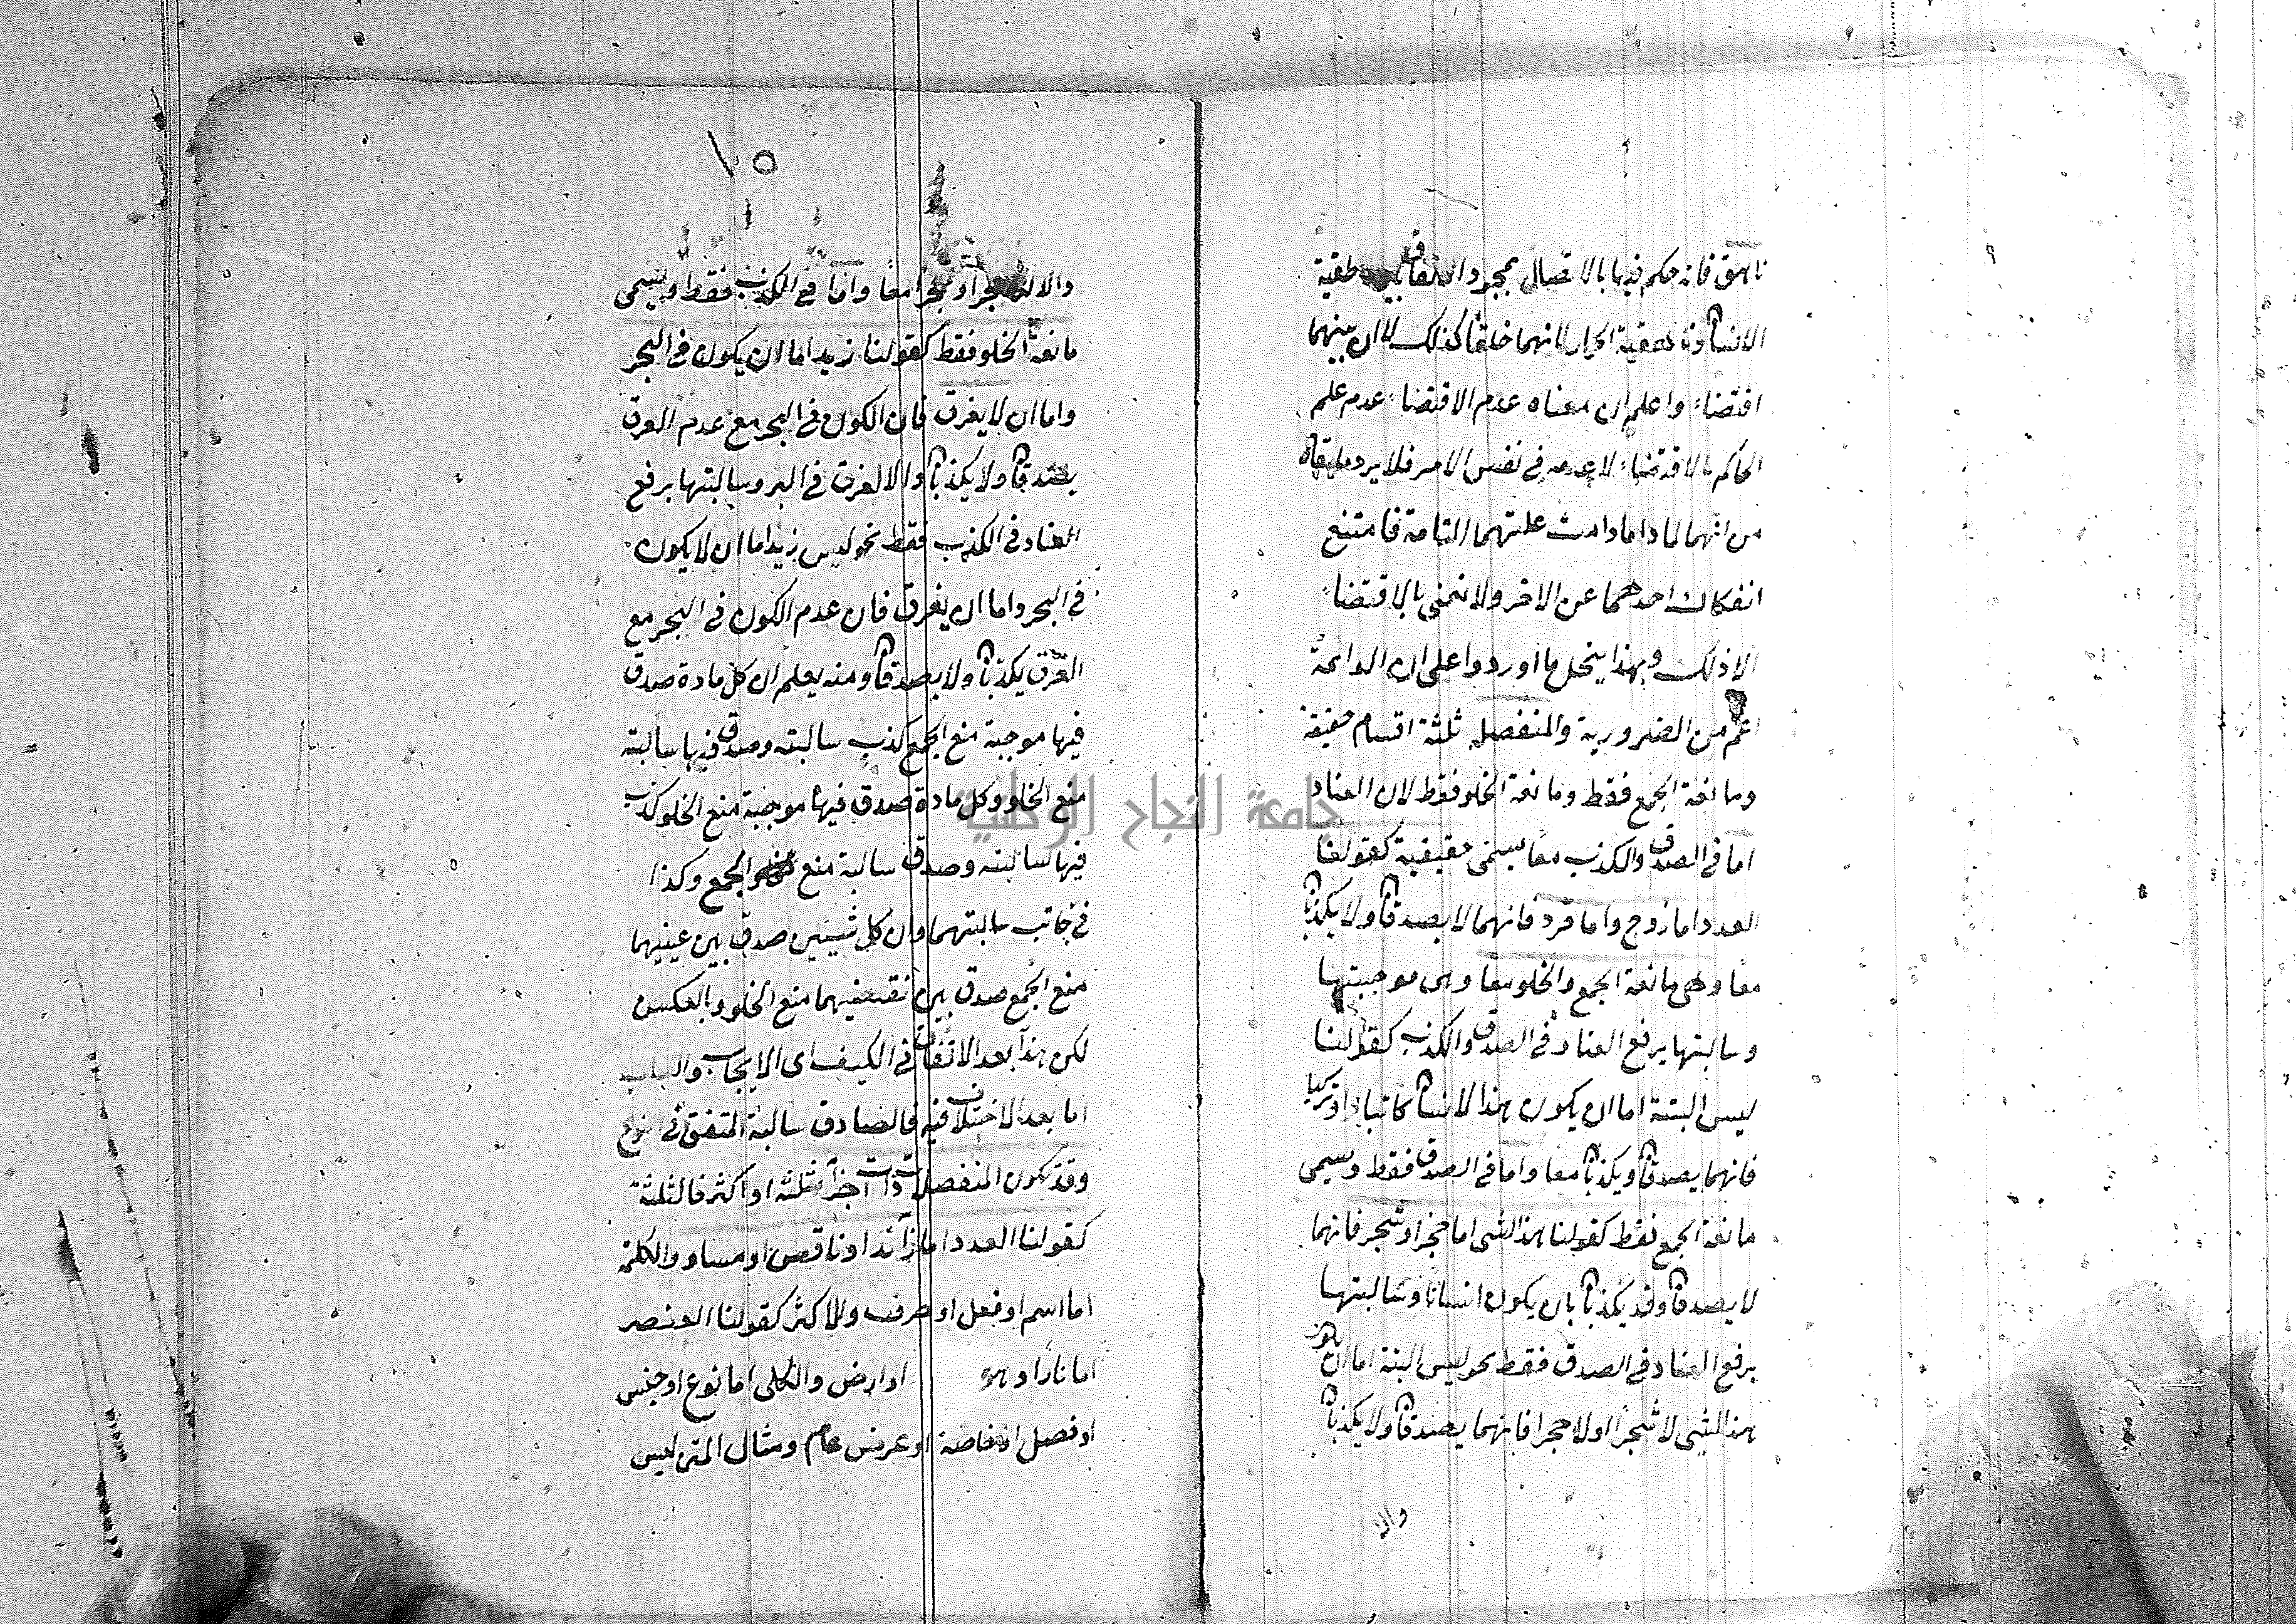 ناهق فانه حكم فيها بالاتصال بمجرد الاتفاق بين ناطقية
الانسان وناهقية الحمار لانهما خلقا كذلك لا ان بينهما
اقتضاء واعلم ان معناه عدم الاقتضاء عدم علم
الحاكم بالاقتضاء لا عدمه في نفس الامر فلا يرد ما يقال
من انهما لما داما دامت علتهما التامة فامتنع
انفكاك احدهما عن الاخر ولا نعني بالاقتضاء
الا ذلك وبهذا ينحل ما اوردوا على ان الدائمة
اعم من الضرورية والمنفصل ثلثة اقسام حقيقة
ومانعة الجمع فقط ومانعة الخلو فقط لان العناد
اما في الصدق والكذب معا يسمى حقيقية كقولنا
العدد اما زوج واما فرد فانهما لا يصدقان ولا يكذبان
معا وهي مانعة الجمع والخلو معا وهى موجبتها
وسالبتها يرفع العناد في الصدق والكذب كقولنا
ليس البتة اما ان يكون هذا الانسان كاتبا او تركيا
فانهما يصدقان ويكذبان معا واما في الصدق فقط ويسمى
مانعة الجمع فقط كقولنا هذا الشى اما حجر او شجر فانهما
لا يصدقان وقد يكذبان بان يكون انسانا وسالبتها
برفع العناد في الصدق فقط نحو ليس البتة اما ان يكون
هذا الشى لا شجرا او لا حجرا فانهما يصدقان ولا يكذبان
والا
١٥
والا لكان شجرا وحجرا معا واما في الكذب فقط ويسمى
مانعة الخلو فقط كقولنا زيد اما ان يكون في البحر
واما ان لا يغرق فان الكون في البحر مع عدم الغرق
يصدقان ولا يكذبان والا لغرق في البر وسالبتها برفع
العناد في الكذب فقط نحو ليس زيد اما ان لا يكون
في البحر واما ان يغرق فان عدم الكون في البحر مع
الغرق يكذبان ولا يصدقان ومنه يعلم ان كل مادة صدق
فيها موجبة منع الجمع كذب سالبته وصدق فيها سالبته
منع الخلو وكل مادة صدق فيها موجبة منع الخلو كذب
فيها سالبته وصدق سالبة منع الجمع وكذا
في جانب سالبتهما وان كل شيئين صدق بين عينيهما
منع الجمع صدق بين نقيضيهما منع الخلو وبالعكس
لكن هذا بعد الاتفاق في الكيف اى الايجاب والسلب
اما بعد الاختلاف فيه فالصادق سالبة المتفق في النوع
وقد تكون المنفصلات ذات اجزآء ثلثة او اكثر فالثلثة
كقولنا العدد اما زآئد او ناقص او مساو والكلمة
اما اسم او فعل او حرف وللاكثر كقولنا العنصر
اما نارا و هو او ارض والكلى اما نوع او جنس
او فصل او خاصة او عرض عام ومثال المتن ليس
جامعة النجاح الوطنية